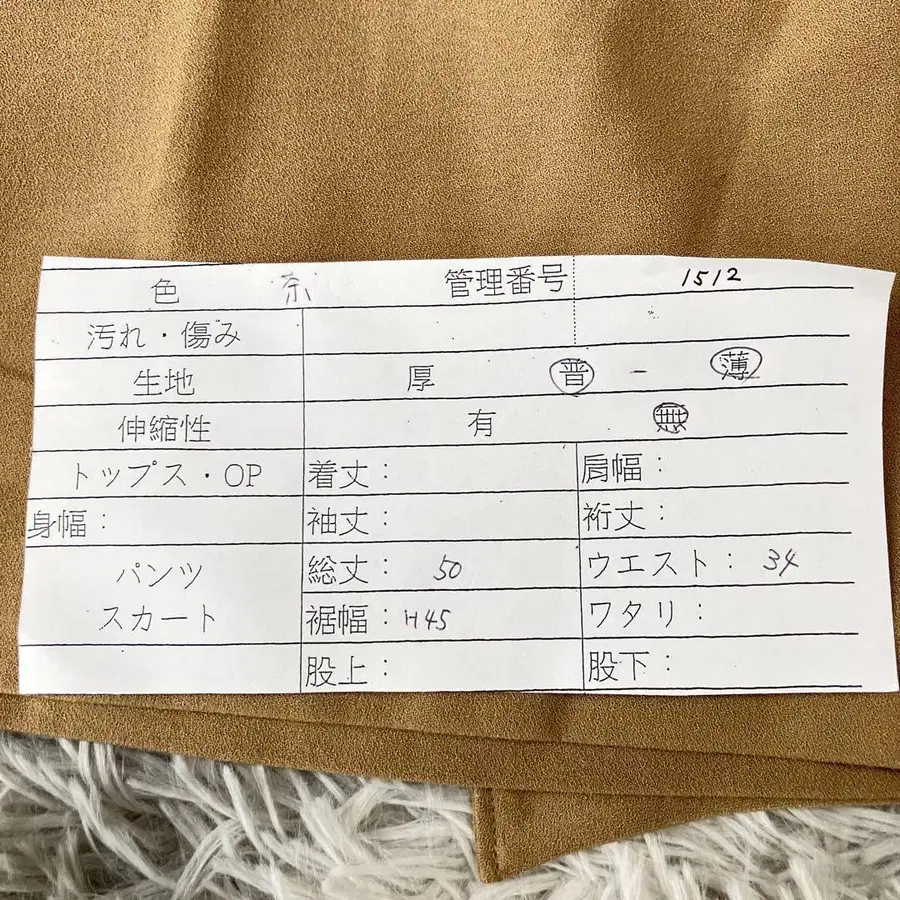 色 茶 管理番号 1512
汚れ・傷み
生地 厚 普 - 薄
伸縮性 有 無
トップス・OP 着丈: 肩幅:
身幅: 袖丈: 裄丈:
パンツ 総丈: 50 ウエスト: 34
スカート 裾幅: H45 ワタリ:
股上: 股下: